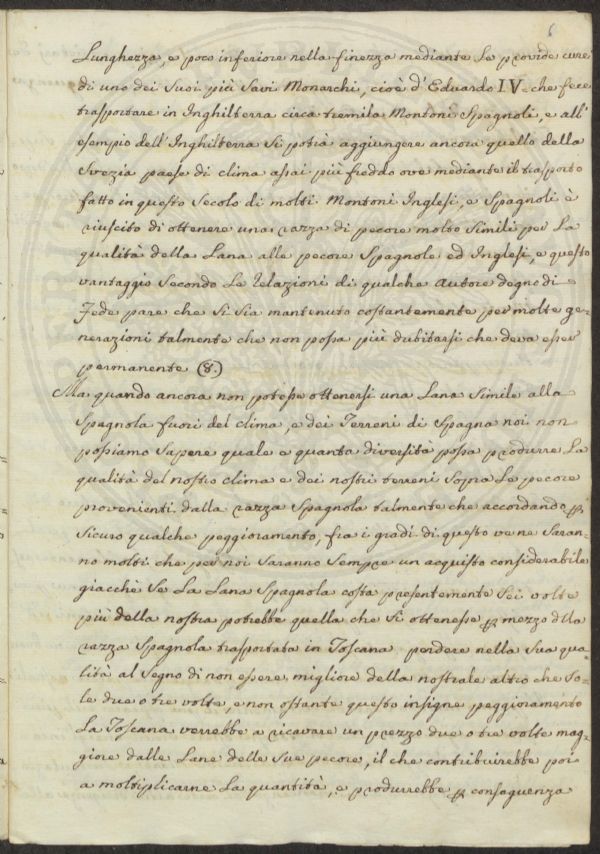 6
Lunghezza, e poco inferiore nella finezza mediante le provide cure
di uno dei Suoi più Savi Monarchi, cioè d'Eduardo IV. che fece
trasportare in Inghilterra circa tremila Montoni Spagnoli, e all'
esempio dell'Inghilterra si potrà aggiungere ancora quello della
Svezia paese di clima assai più freddo ove mediante il trasporto
fatto in questo Secolo di molti Montoni Inglesi, e Spagnoli è
riuscito di ottenere una razza di pecore molto Simili per La
qualità della Lana alle pecore Spagnole ed Inglesi, e questo
vantaggio Secondo Le Relazioni di qualche Autore degno di
Fede pare che Si Sia mantenuto costantemente per molte ge-
nerazioni talmente che non possa più dubitarsi che deva esser
permanente (8.)
Ma quando ancora non potesse ottenersi una Lana Simile alla
Spagnola fuori del clima, e dei Terreni di Spagna noi non
possiamo Sapere quale e quanta diversità possa produrre La
qualità del nostro clima e dei nostri terreni Sopra Le pecore
provenienti dalla razza Spagnola talmente che accordando p
Sicuro qualche peggioramento, fra i gradi di questo ve ne Saran-
no molti che per noi Saranno Sempre un acquisto considerabile
giacchè Se La Lana Spagnola costa presentemente Sei volte
più della nostra potrebbe quella che Si ottenesse p mezzo dlla
razza Spagnola trasportata in Toscana perdere nella Sua qua-
lità al Segno di non essere migliore della nostrale altro che So-
le due o tre volte, e non ostante questo insigne peggioramento
La Toscana verrebbe a ricavare un prezzo due o tre volte mag-
giore dalle Lane delle Sue pecore, il che contribuirebbe poi
a moltiplicarne La quantità, e produrrebbe p conseguenza